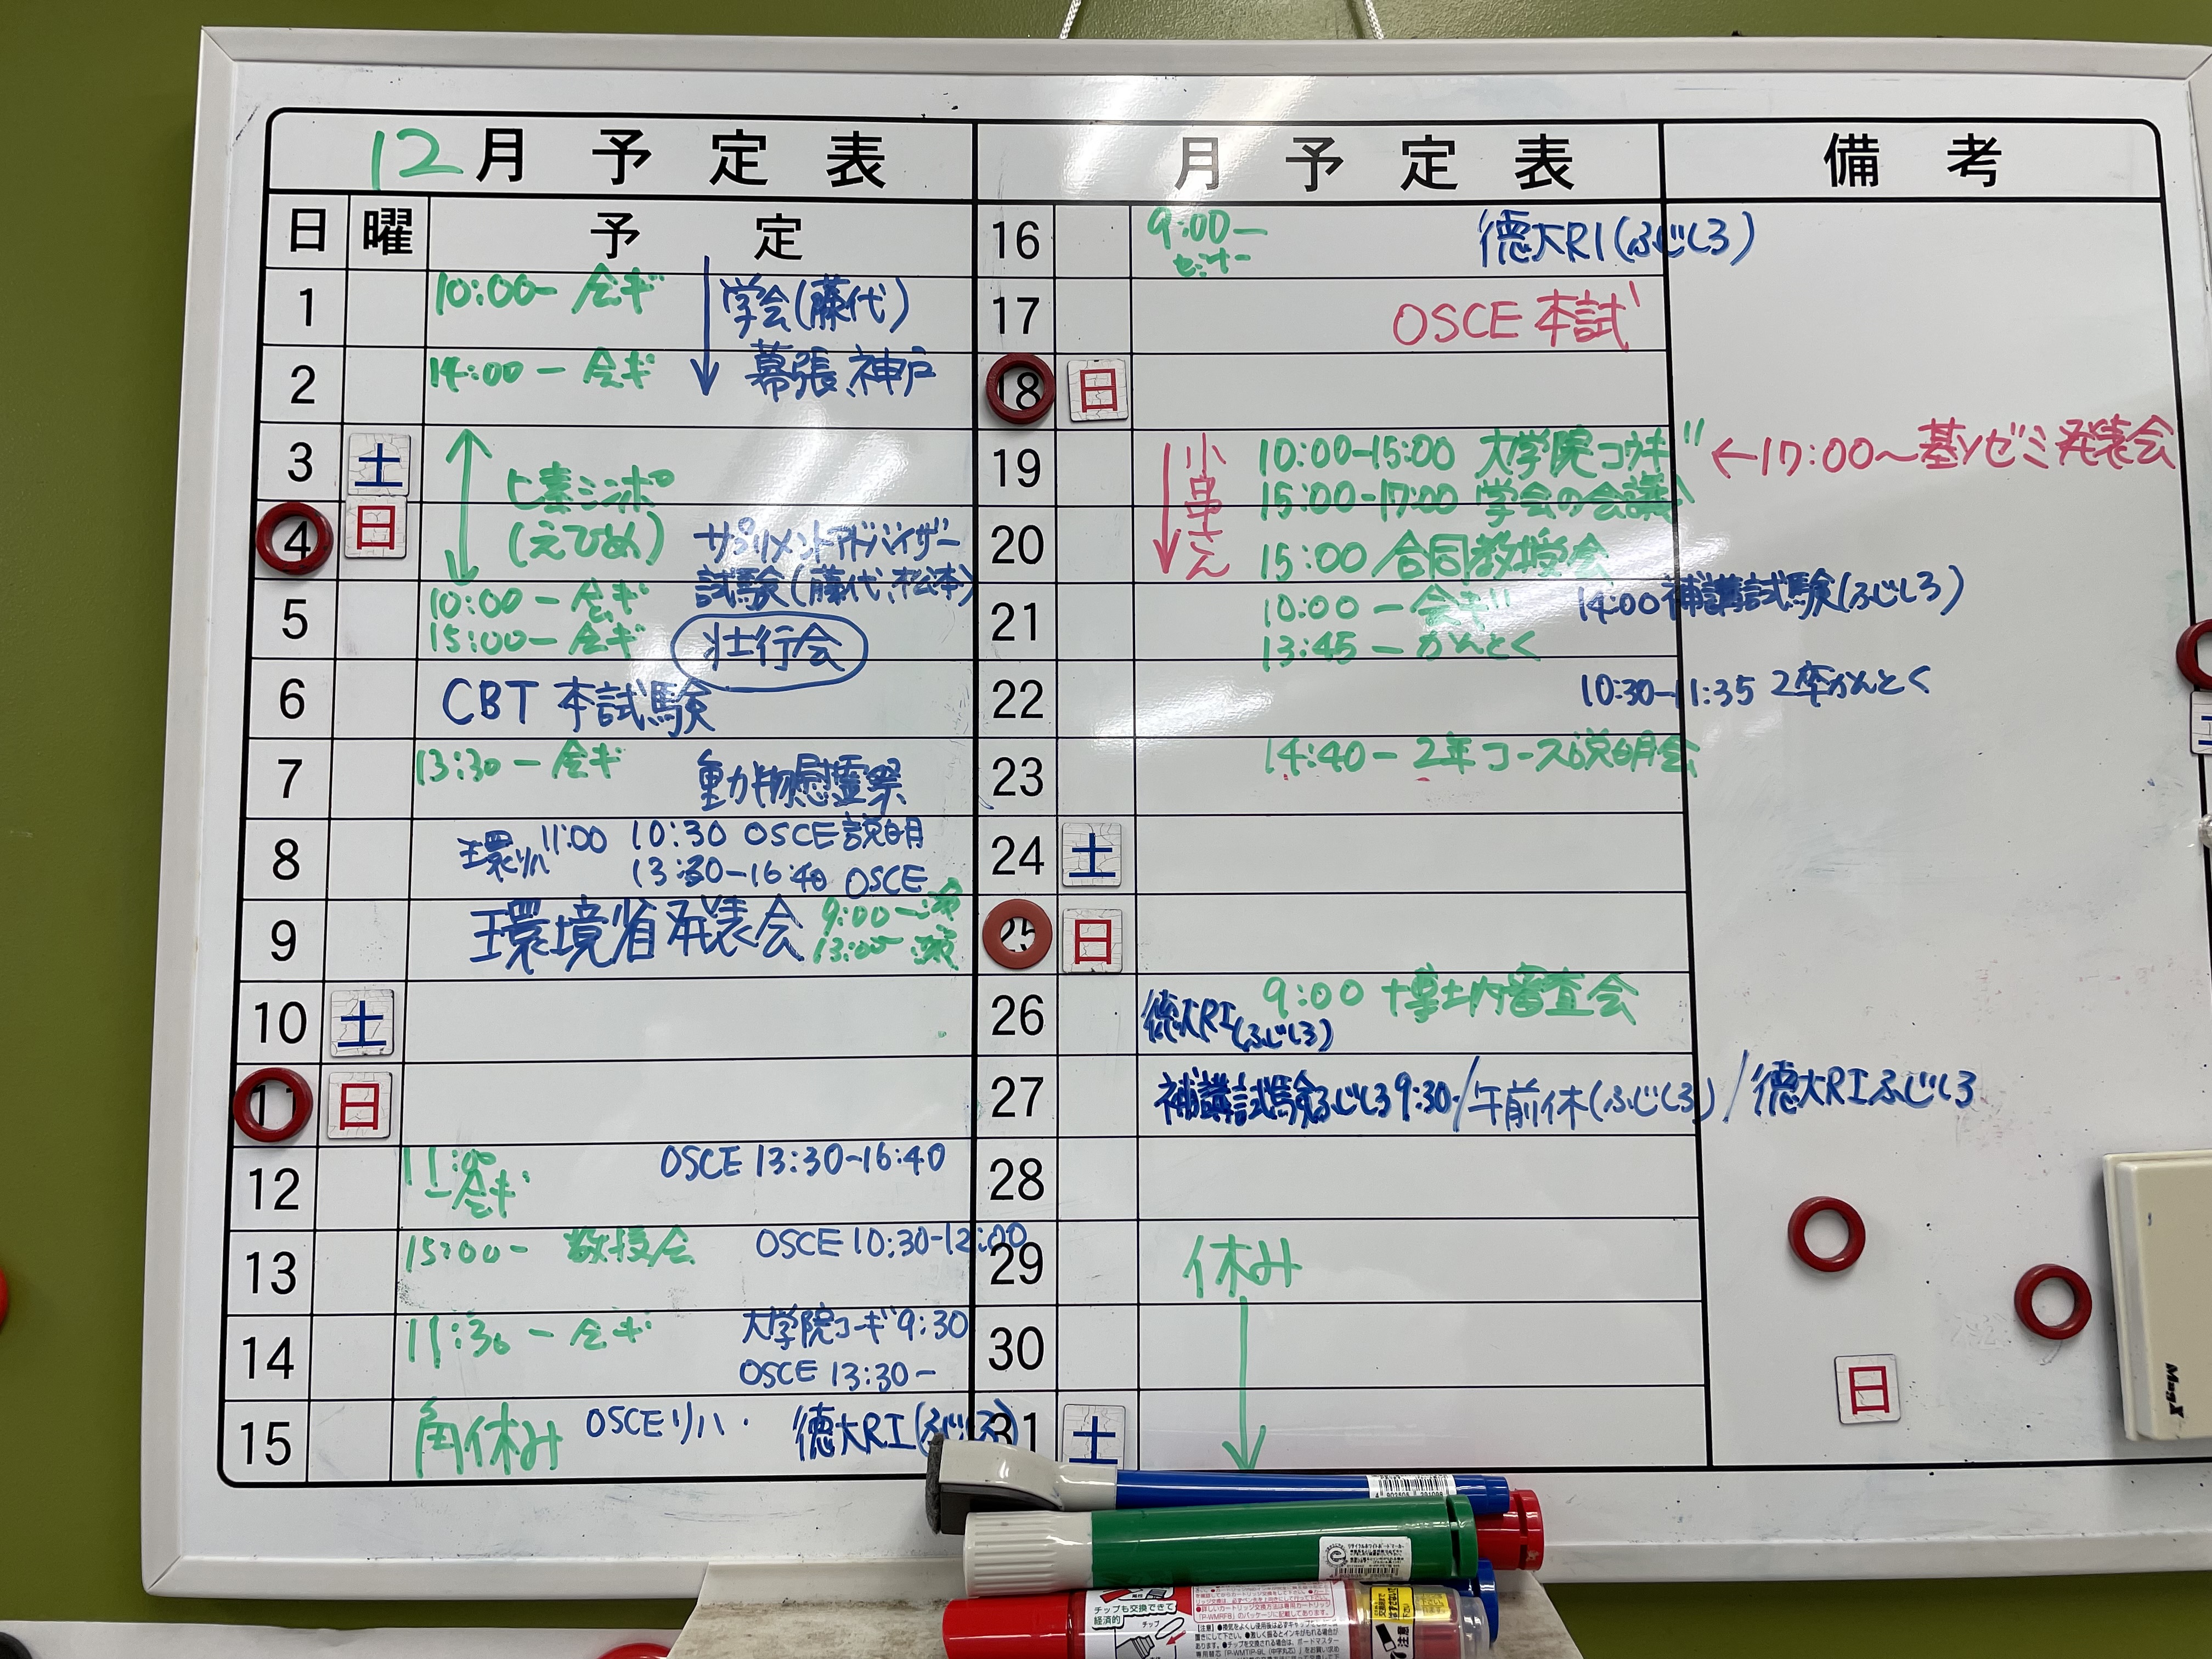 12月 予 定 表
日 曜 予 定
1 10:00- 会ギ 学会(藤代)
2 14:00- 会ギ 幕張、神戸
3 土 ヒ素シンポ
4 日 (えひめ) サプリメントアドバイザー
試験(藤代、松本)
5 10:00- 会ギ
15:00- 会ギ 壮行会
6 CBT 本試験
7 13:30- 会ギ 動物慰霊祭
8 環リハ 11:00 10:30 OSCE説明
13:30-16:40 OSCE
9 環境省発表会 9:00-
13:00-
10 土
11 日
12 11:00 OSCE 13:30-16:40
-会ギ
13 15:00- 教授会 OSCE 10:30-12:00
14 11:30- 会ギ 大学院コーギ 9:30
OSCE 13:30-
15 角休み OSCEリハ・ 徳大RI(ふじしろ)
月 予 定 表
16 9:00- 徳大RI(ふじしろ)
セミナー
17 OSCE 本試
18 日
19 小串さん 10:00-15:00 大学院コウギ ←17:00〜基Yゼミ発表会
15:00-17:00 学会の会議
20 15:00 合同教授会
21 10:00- 会ギ 14:00補講試験(ふじしろ)
13:45- かんとく
22 10:30-11:35 2年かんとく
23 14:40- 2年コース説明会
24 土
25 日
26 徳大RI(ふじしろ) 9:00 博士内審査会
27 補講試験ふじしろ9:30-/午前休(ふじしろ)/徳大RIふじしろ
28
29 休み
30
31 土
備 考
日
MagX
チップも交換できて
経済的
チップ
注意